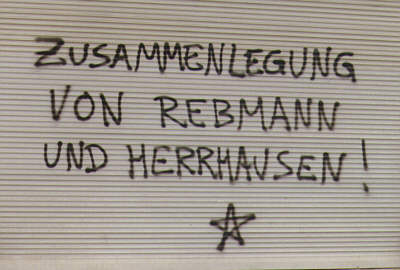 ZUSAMMENLEGUNG
VON REBMANN
UND HERRHAUSEN!